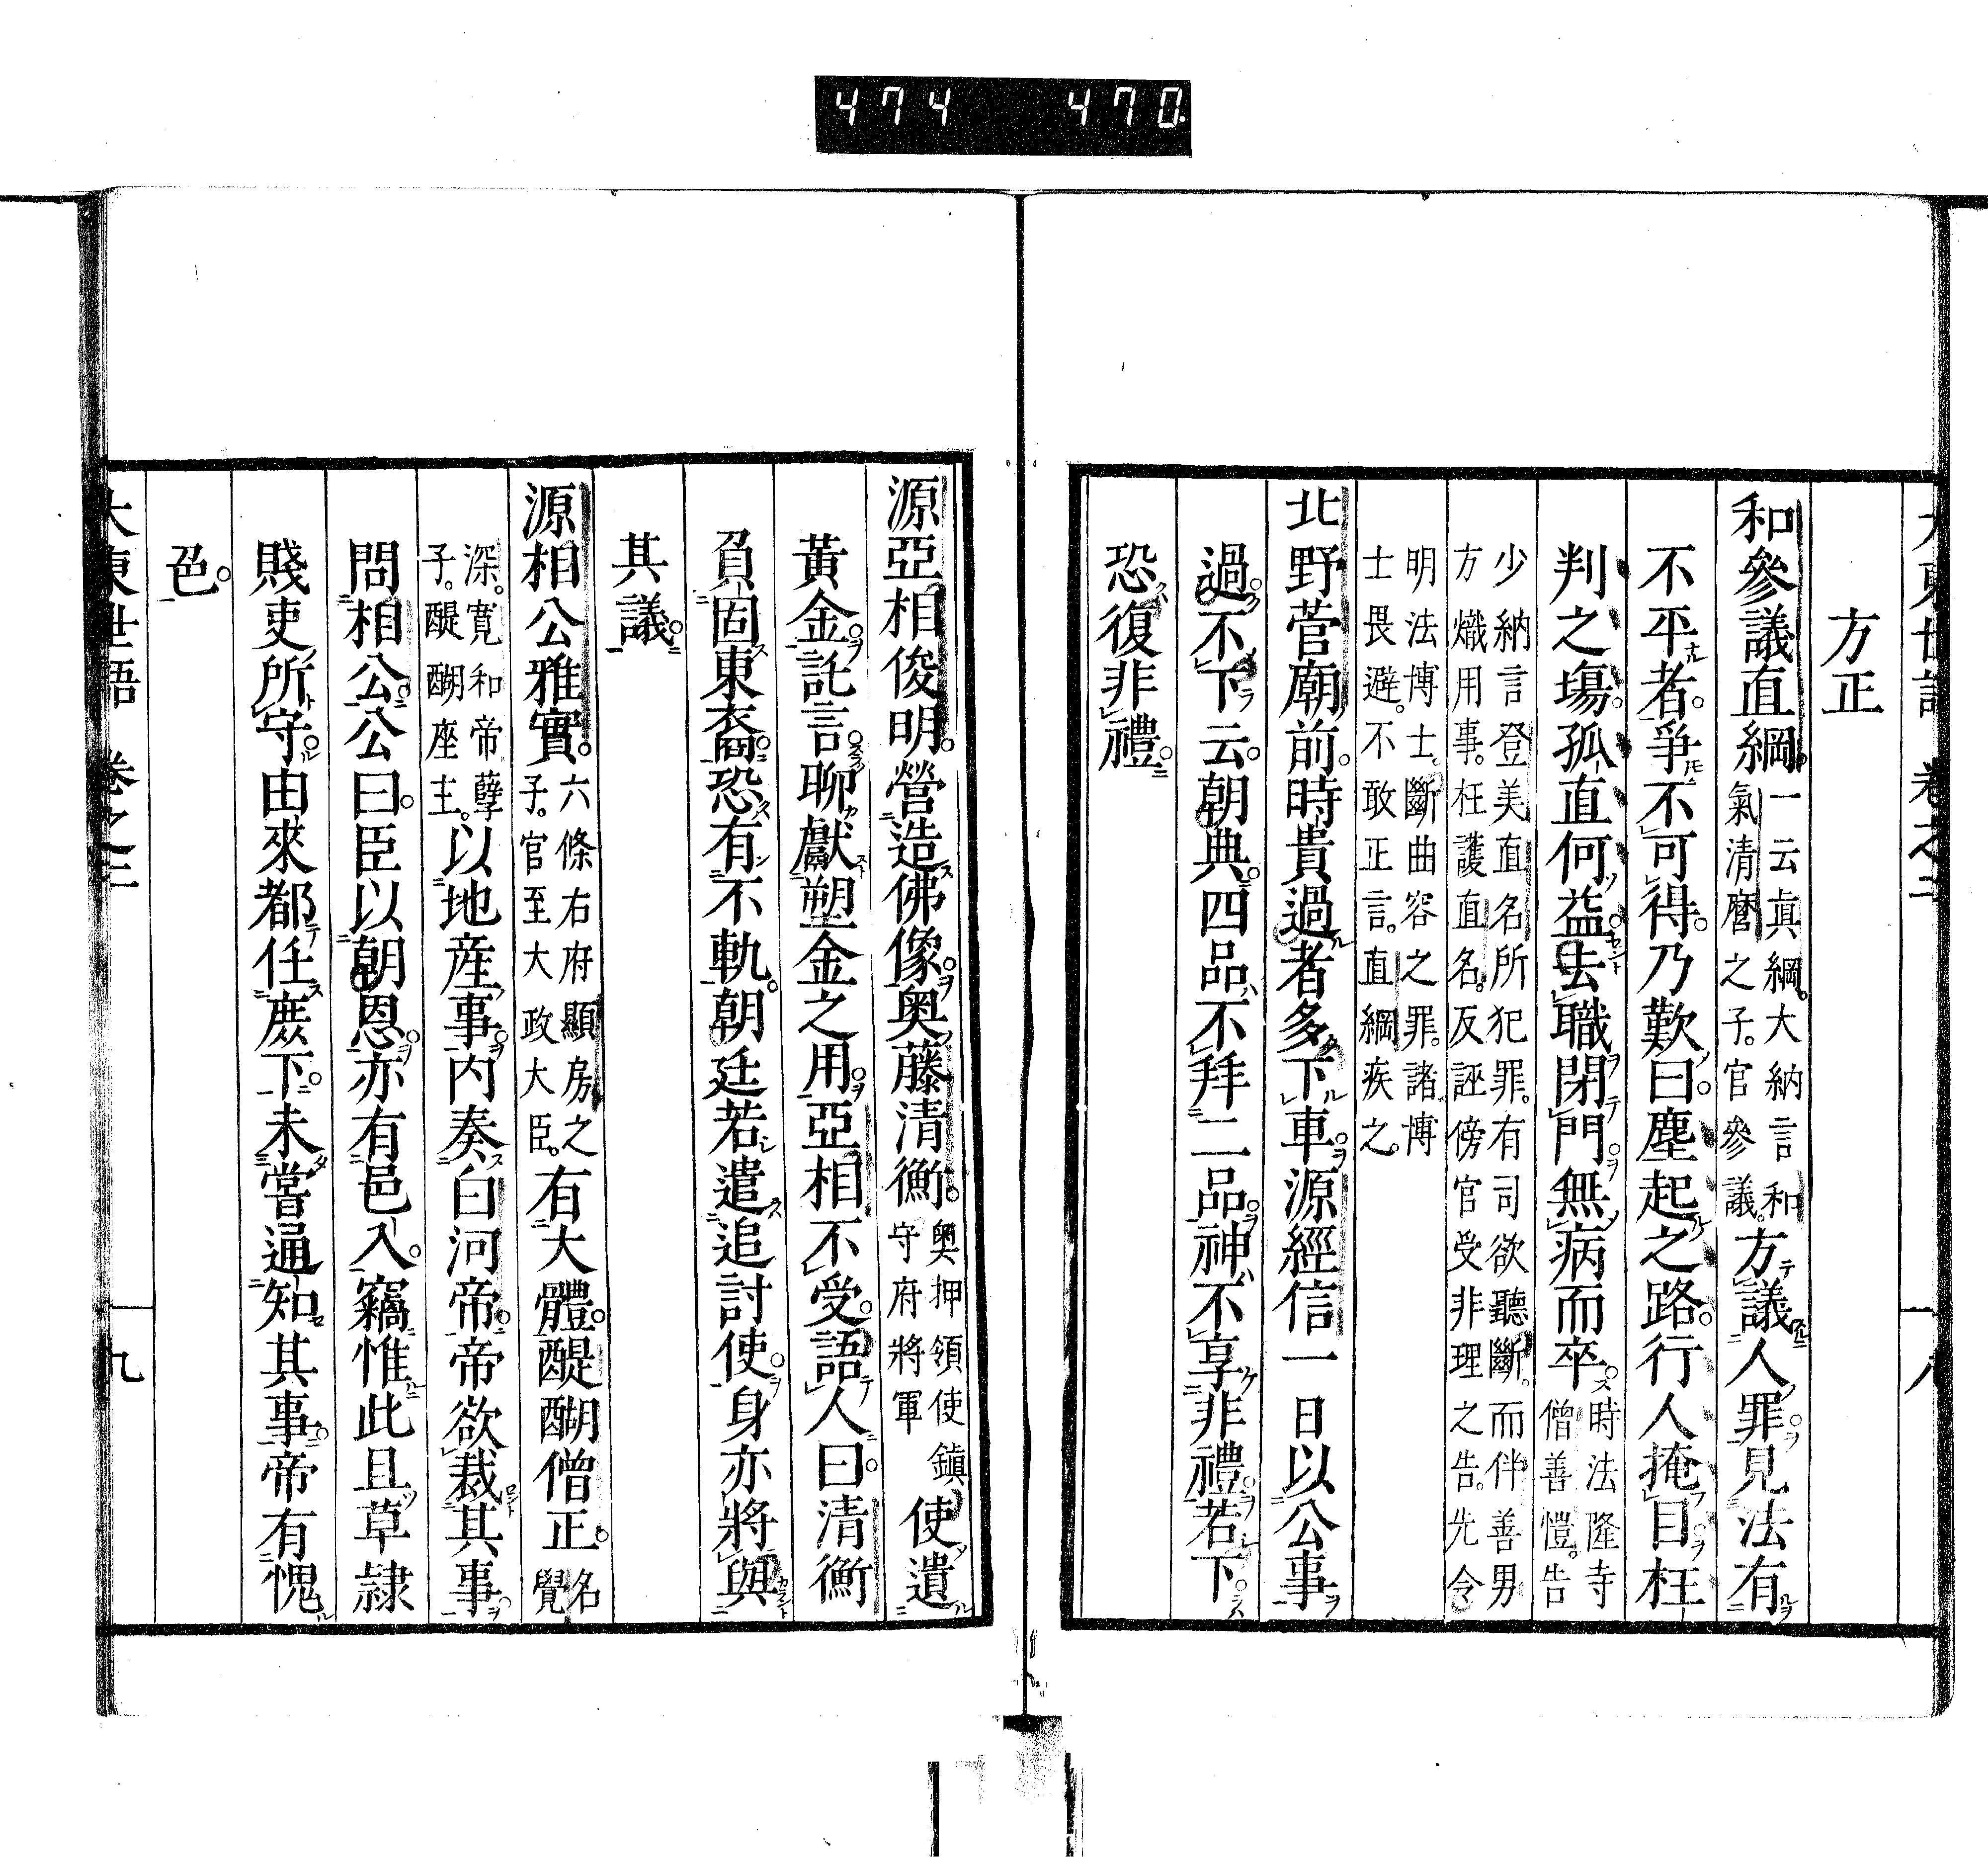 474 470
大東世語 卷之二 一八
方正
和參議直綱一云眞綱大納言和氣清麿之子官參議方議人罪見法有
不平者爭不可得乃歎曰塵起之路行人掩目枉
判之塲孤直何益去職閉門無病而卒時法隆寺僧善愷告
少納言登美直名所犯罪有司欲聽斷而伴善男方熾用事枉護直名反誣傍官受非理之告先令
明法博士斷曲容之罪諸博士畏避不敢正言直綱疾之
北野菅廟前時貴過者多下車源經信一日以公事
過不下云朝典四品不拜二品神不享非禮若下
恐復非禮
源亞相俊明營造佛像奥藤清衡奧押領使鎮守府將軍使遺
黃金託言聊獻塑金之用亞相不受語人曰清衡
負固東裔恐有不軌朝廷若遣追討使身亦將與
其議
源相公雅實六條右府顯房之子官至大政大臣有大體醍醐僧正名覺
深寬和帝孽子醍醐座主以地産事内奏白河帝帝欲裁其事
問相公公曰臣以朝恩亦有邑入竊惟此且草隷
賤吏所守由來都任庶下未嘗通知其事帝有愧
色
大東世語 卷之二 一九